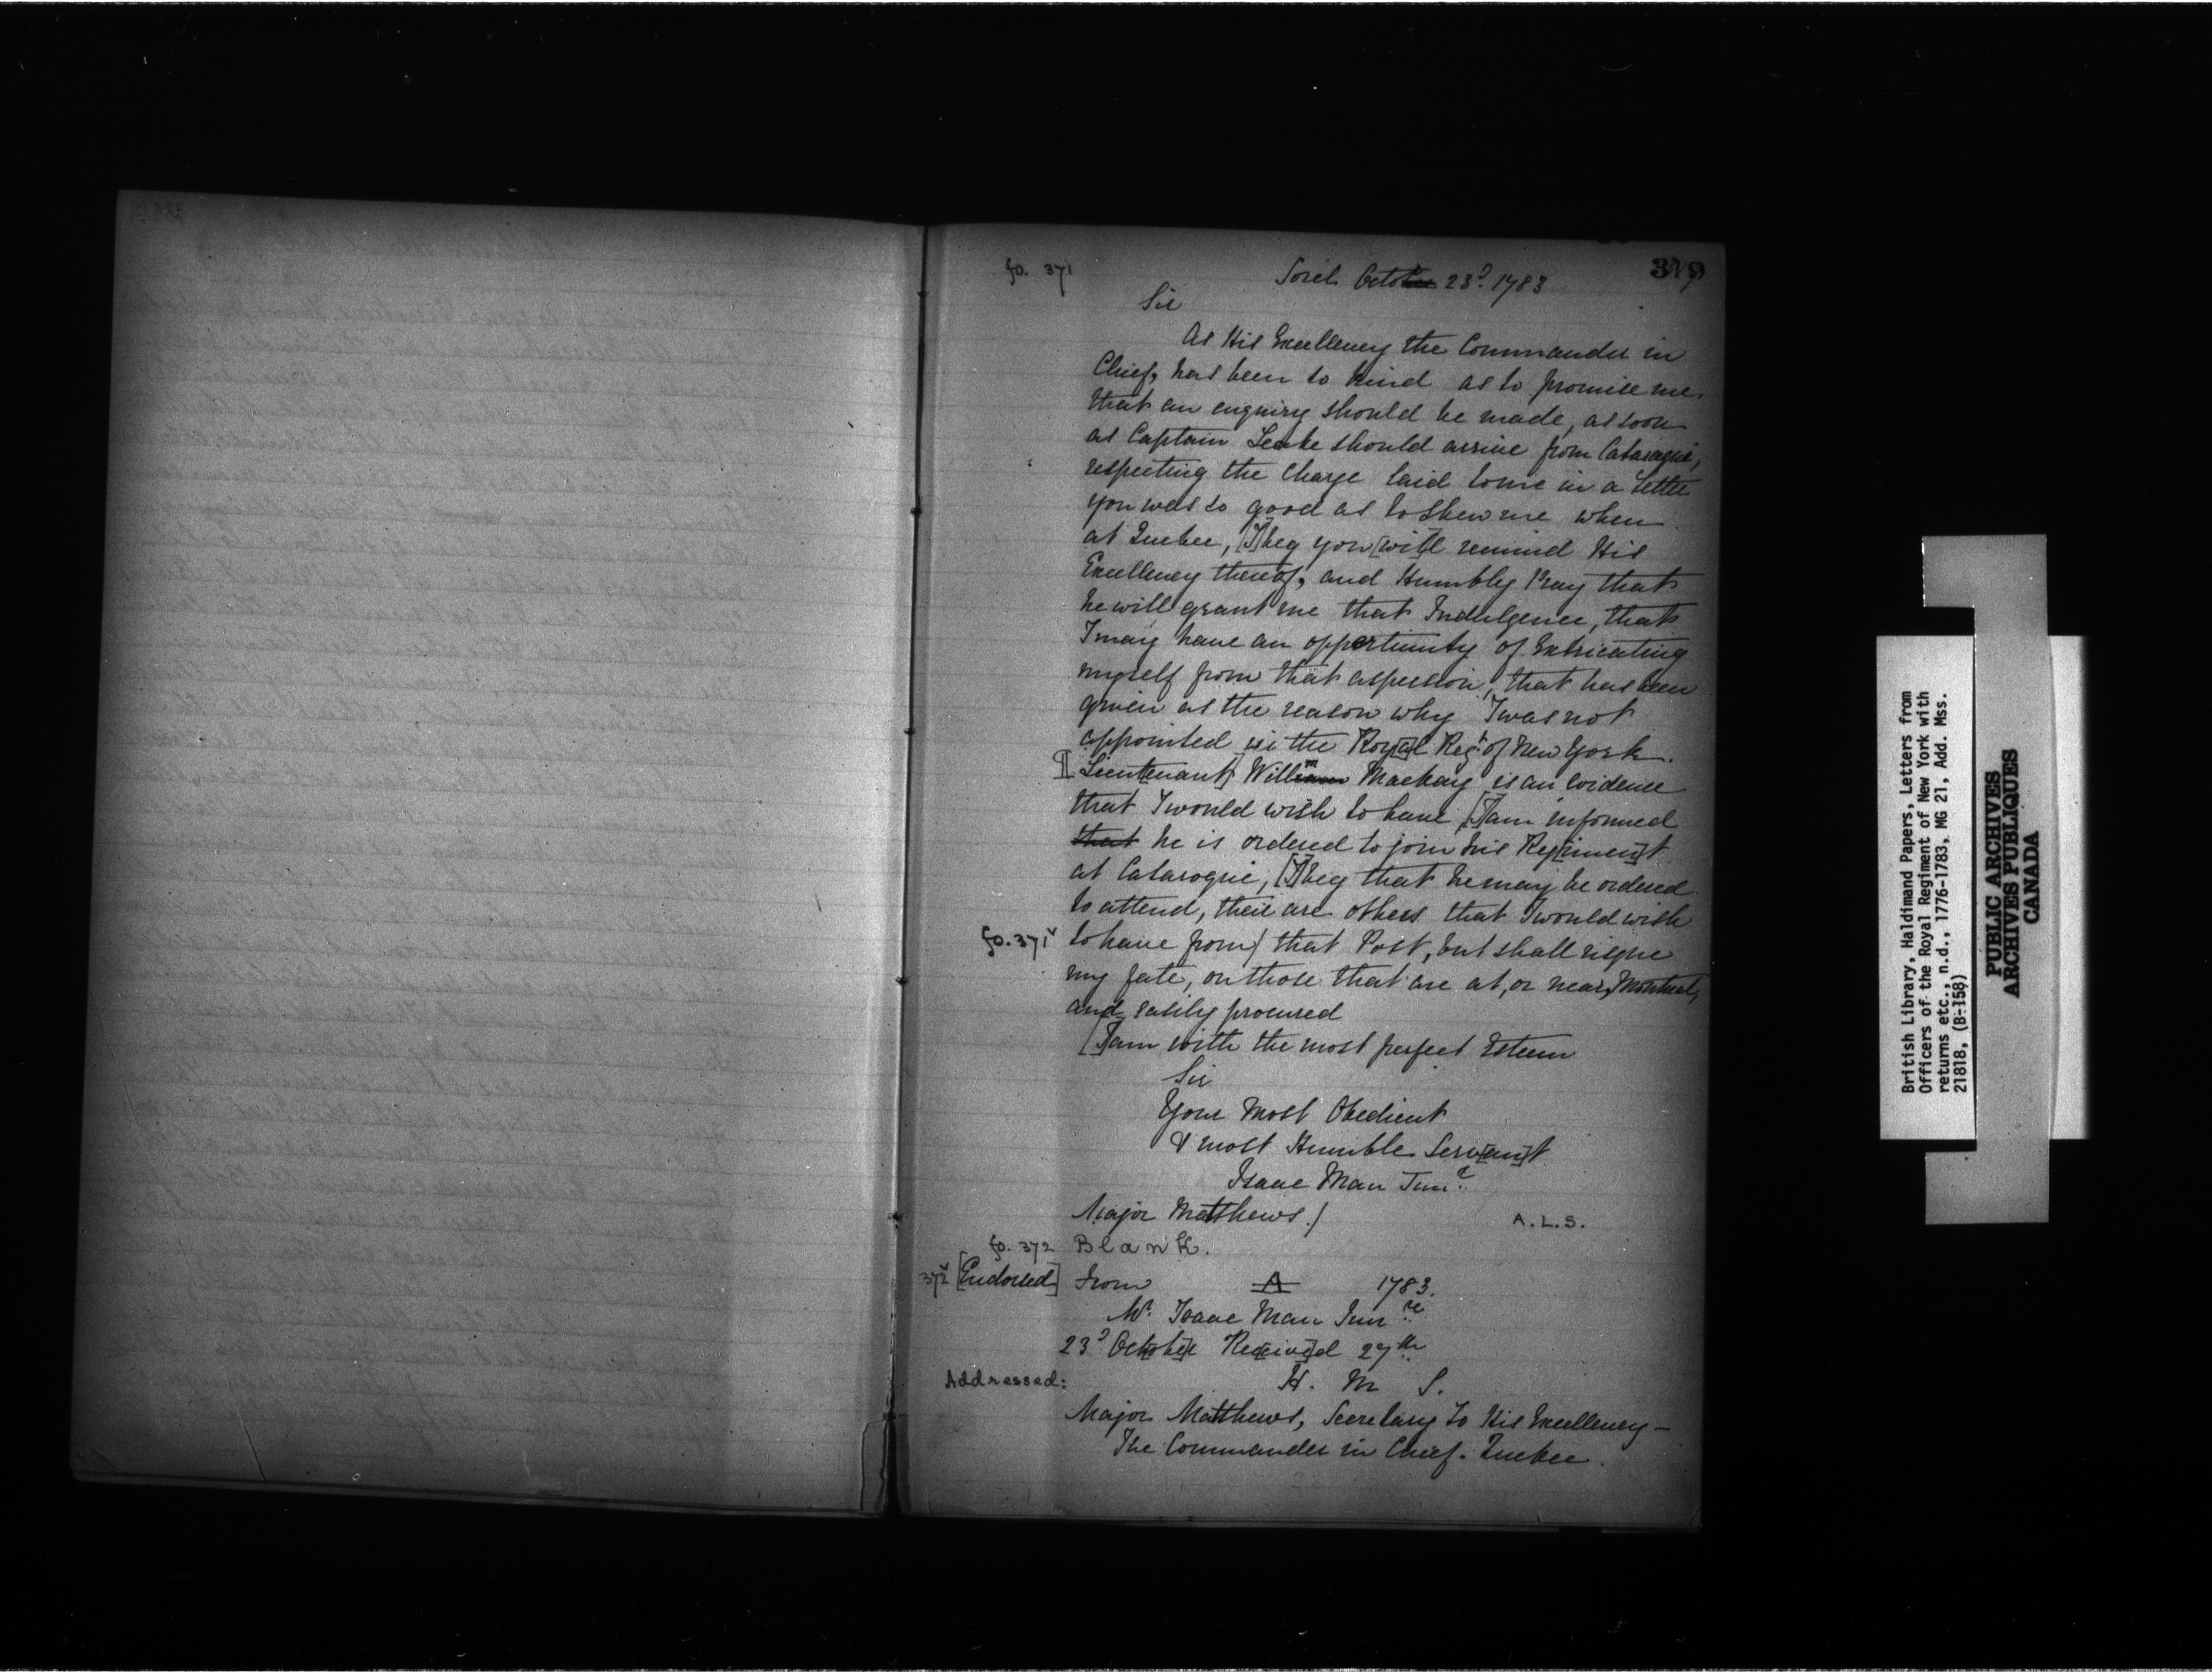 fo. 371
Sorel October 23d. 1783
379
Sir
As His Excellency the Commander in
Chief, has been so kind as to promise me,
that an enquiry should be made, as soon
as Captain Leake should arrive from Cataraqui,
respecting the Charge laid to me in a Letter
you was so good as to shew me when
at Quebec, [I] beg you [wi]ll remind His
Excellency thereof, and Humbly Pray that
he will grant me that Indulgence, that
I may have an oppertunity of Extricating
myself from that aspersion, that has been
given as the reason why I was not
appointed in the Roy[a]l Regt. of New York.
¶ Lieut[enant] Willm Mackay is an Evidence
that I would wish to have, [I] am informed
that he is ordered to join his Reg[imen]t
at Cataroqui, [I] beg that he may be ordered
to attend, their are others that I would wish
fo. 371v to have from/ that Post, but shall risque
my fate, on those that are at, or near, Montreal,
and easily procured
[I] am with the most perfect Esteem
Sir
Your Most Obedient
& most Humble Serv[an]t
Isaac Man Junr.
Major Matthews./
A.L.S.
fo. 372 Blank.
372v [Endorsed] From A 1783.
Mr. Isaac Man Junre.
23d Octo[be]r Rec[eive]d 27th.
Addressed: H. M. S.
Major Matthews, Secretary to His Excellency —
The Commander in Chief. Quebec.
British Library, Haldimand Papers, Letters from
Officers of the Royal Regiment of New York with
returns etc., n.d., 1776-1783, MG 21, Add. Mss.
21818, (B-158)
PUBLIC ARCHIVES
ARCHIVES PUBLIQUES
CANADA